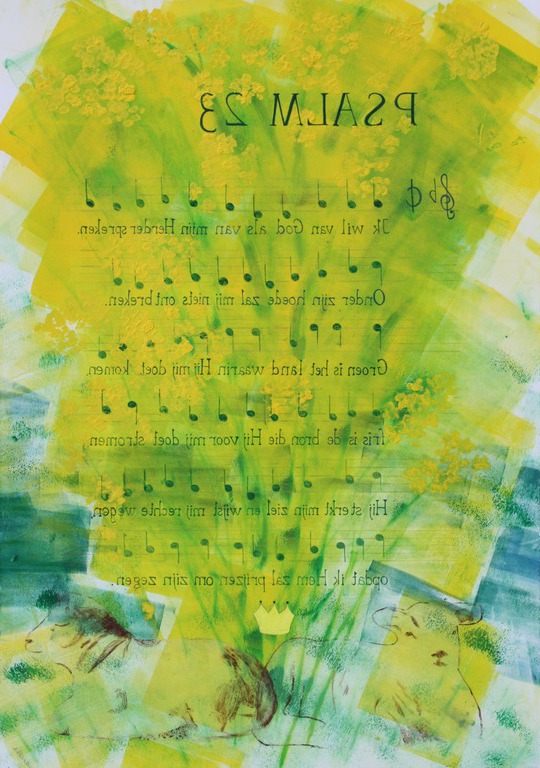 PSALM 23
Ik wil van God als van mijn Herder spreken.
Onder zijn hoede zal mij niets ontbreken.
Groen is het land waarin Hij mij doet komen,
fris is de bron die Hij voor mij doet stromen
Hij sterkt mijn ziel en wijst mij rechte wegen,
opdat ik Hem zal prijzen om zijn zegen.